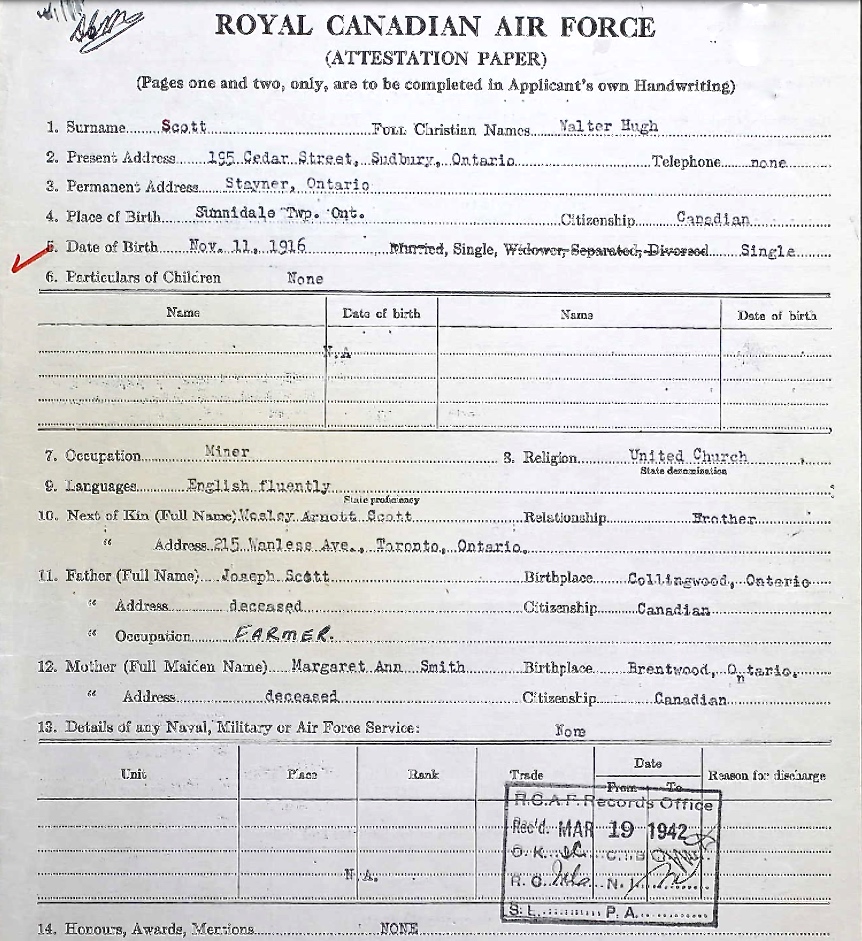 ROYAL CANADIAN AIR FORCE
(ATTESTATION PAPER)
(Pages one and two, only, are to be completed in Applicant's own Handwriting)
1. Surname Scott Full Christian Names Walter Hugh
2. Present Address 195 Cedar Street, Sudbury, Ontario Telephone none
3. Permanent Address Stayner, Ontario
4. Place of Birth Sunnidale Twp. Ont. Citizenship Canadian
5. Date of Birth Nov. 11, 1916 Married, Single, Widower, Separated, Divorced Single
6. Particulars of Children None
Name Date of birth Name Date of birth
N.A
7. Occupation Miner 8. Religion United Church
State denomination
9. Languages English fluently
State proficiency
10. Next of Kin (Full Name) Wesley Arnott Scott Relationship Brother
" Address 215 Wanless Ave., Toronto, Ontario.
11. Father (Full Name) Joseph Scott Birthplace Collingwood, Ontario
" Address deceased Citizenship Canadian
" Occupation FARMER.
12. Mother (Full Maiden Name) Margaret Ann Smith Birthplace Brentwood, Ontario.
" Address deceased Citizenship Canadian
13. Details of any Naval, Military or Air Force Service: None
Unit Place Rank Trade Date Reason for discharge
From To
R.C.A.F. Records Office
Rec'd. MAR 19 1942
O.K. C.I.B
R.O. N.I.
N.A.
S.L. P.A.
14. Honours, Awards, Mentions NONE